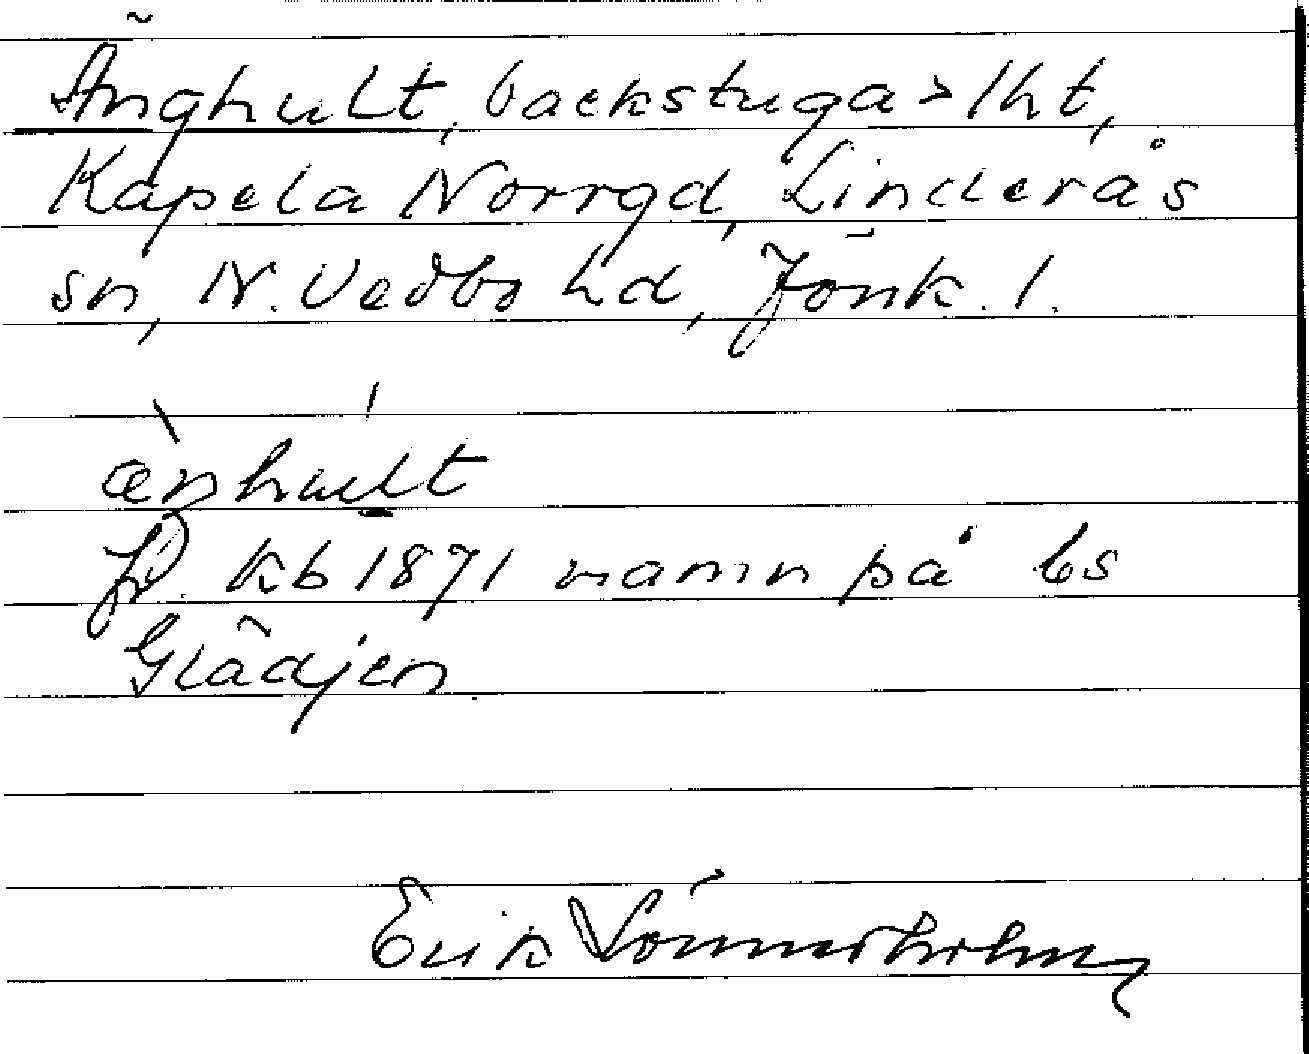 Änghult, backstuga > lht,
Kapela Norrgd, Linderås
sn, N. Vedbo hd, Jönk. l.
ænhult
fr. Kb 1871 namn på bs
Glädjen
Erik